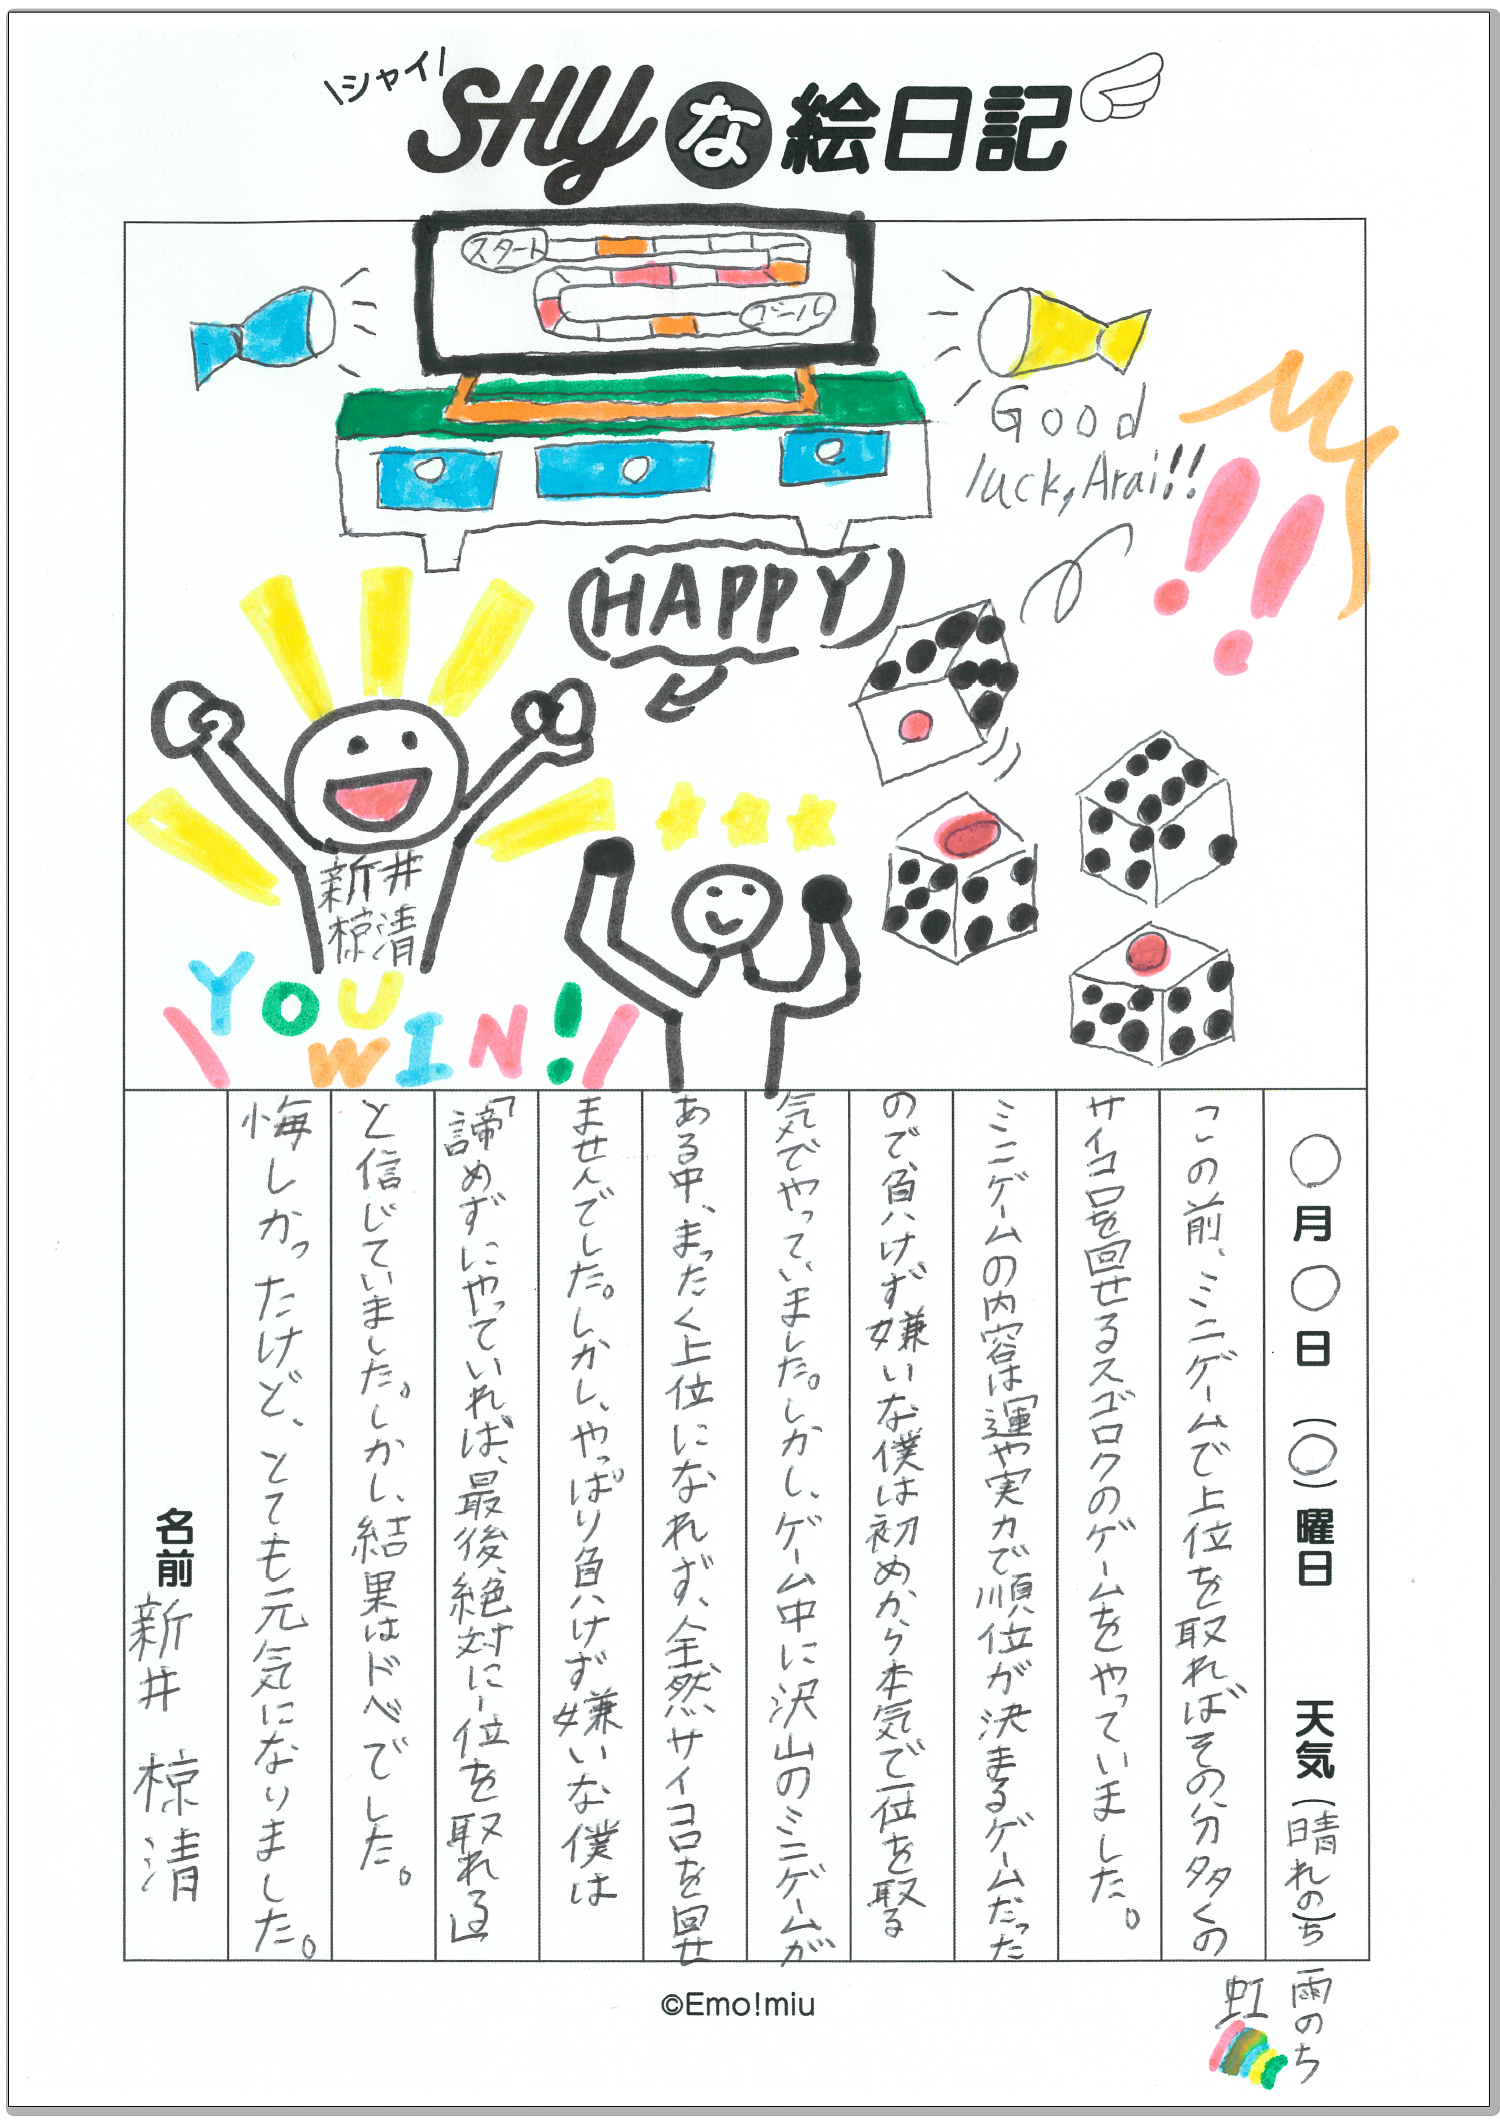 \シャイ/
SHYな絵日記
スタート
ゴール
Good
luck, Arai!!
!!
HAPPY
新井
椋清
YOU
WIN!
○月○日(○)曜日 天気(晴れのち)雨のち
虹
この前、ミニゲームで上位を取ればその分多くの
サイコロを回せるスゴロクのゲームをやっていました。
ミニゲームの内容は「運や実力で順位が決まるゲームだった
ので、負けず嫌いな僕は初めから本気で一位を取る
気でやっていました。しかし、ゲーム中に沢山のミニゲームが
ある中、まったく上位になれず、全然サイコロを回せ
ませんでした。しかし、やっぱり負けず嫌いな僕は
「諦めずにやっていれば、最後、絶対に一位を取れる」
と信じていました。しかし、結果はドベでした。
悔しかったけど、とても元気になりました。
名前 新井 椋清
©Emo!miu